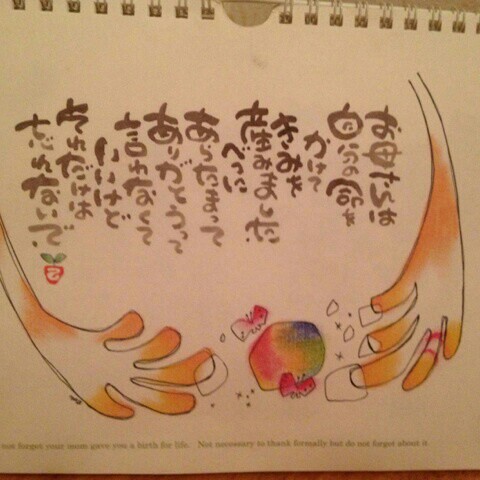 お母さんは
自分の命を
かけて
きみを
産みました
べつに
あらたまって
ありがとうって
言わなくて
いいけど
それだけは
忘れないで。
not forget your mom gave you a birth for life. Not necessary to thank formally but do not forget about it.